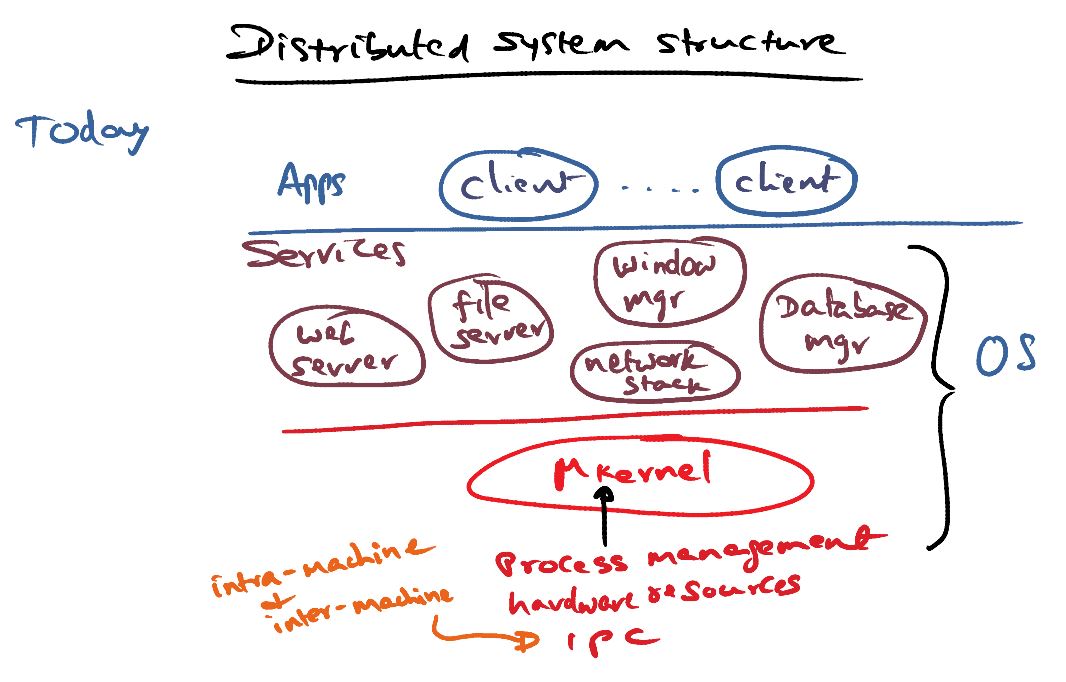 Distributed system structure
Today
Apps
client
.....
client
Services
web
server
file
server
window
mgr
network
stack
Database
mgr
OS
μkernel
Process management
hardware resources
IPC
intra-machine
&
inter-machine